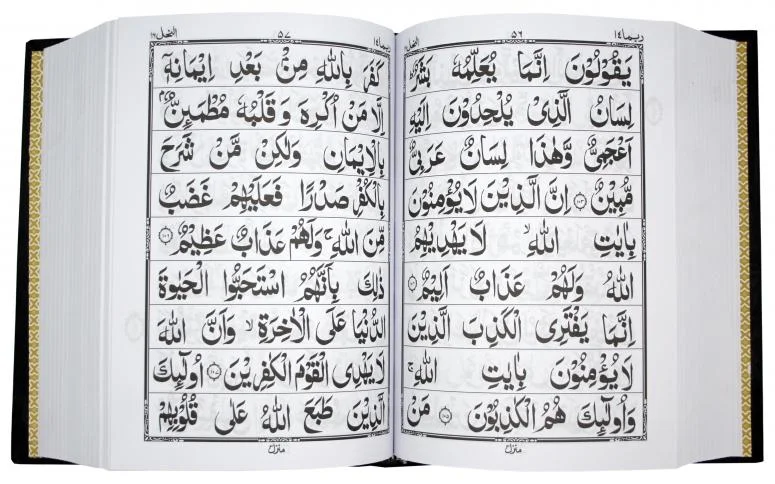 ربما ١٤ ٥٦ النحل ١٦
يَقُوْلُوْنَ اِنَّمَا يُعَلِّمُهٗ بَشَرٌ ؕ
لِسَانُ الَّذِیْ یُلْحِدُوْنَ اِلَیْهِ
اَعْجَمِیٌّ وَّهٰذَا لِسَانٌ عَرَبِیٌّ
مُّبِیْنٌ ۝۱۰۳ اِنَّ الَّذِیْنَ لَا یُؤْمِنُوْنَ
بِاٰیٰتِ اللّٰهِ ۙ لَا یَهْدِیْهِمُ
اللّٰهُ وَلَهُمْ عَذَابٌ اَلِیْمٌ ۝۱۰۴
اِنَّمَا یَفْتَرِی الْكَذِبَ الَّذِیْنَ
لَا یُؤْمِنُوْنَ بِاٰیٰتِ اللّٰهِ ۚ
وَاُولٰٓئِكَ هُمُ الْكٰذِبُوْنَ ۝۱۰۵ مَنْ
منزل ٣
ربما ١٤ ٥٧ النحل ١٦
كَفَرَ بِاللّٰهِ مِنْۢ بَعْدِ اِیْمَانِهٖۤ
اِلَّا مَنْ اُكْرِهَ وَقَلْبُهٗ مُطْمَىِٕنٌّۢ
بِالْاِیْمَانِ وَلٰكِنْ مَّنْ شَرَحَ
بِالْكُفْرِ صَدْرًا فَعَلَیْهِمْ غَضَبٌ
مِّنَ اللّٰهِ ۚ وَلَهُمْ عَذَابٌ عَظِیْمٌ ۝۱۰۶
ذٰلِكَ بِاَنَّهُمُ اسْتَحَبُّوا الْحَیٰوةَ
الدُّنْیَا عَلَی الْاٰخِرَةِ ۙ وَاَنَّ اللّٰهَ
لَا یَهْدِی الْقَوْمَ الْكٰفِرِیْنَ ۝۱۰۷ اُولٰٓئِكَ
الَّذِیْنَ طَبَعَ اللّٰهُ عَلٰی قُلُوْبِهِمْ
منزل ٣